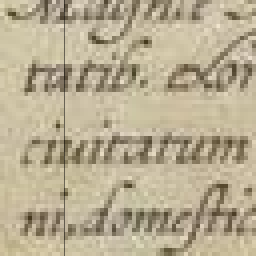 Magnæ
ratib. exor
ciuitatum
ni, domestic